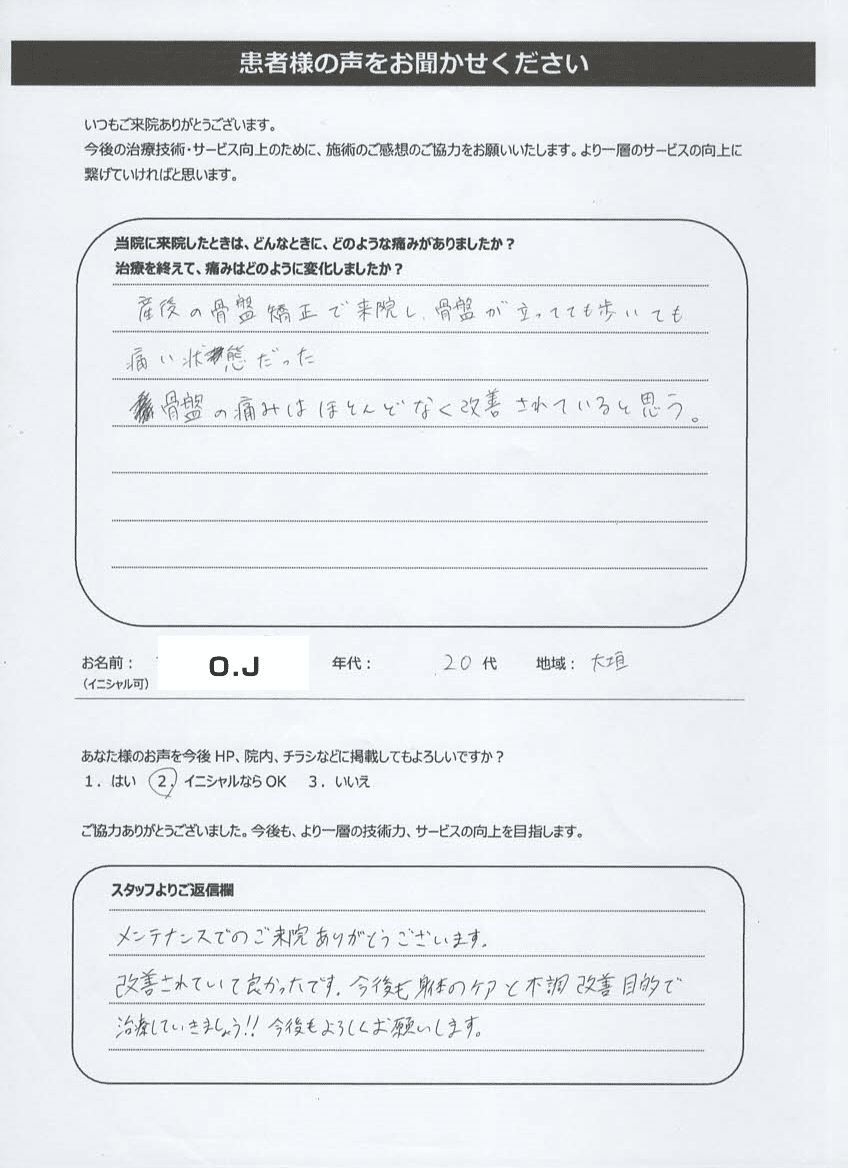 患者様の声をお聞かせください
いつもご来院ありがとうございます。
今後の治療技術・サービス向上のために、施術のご感想のご協力をお願いいたします。より一層のサービスの向上に
繋げていければと思います。
当院に来院したときは、どんなときに、どのような痛みがありましたか？
治療を終えて、痛みはどのように変化しましたか？
産後の骨盤矯正で来院し、骨盤が立ってても歩いても
痛い状態だった
骨盤の痛みはほとんどなく改善されていると思う。
お名前： O.J 年代： 20代 地域： 大垣
（イニシャル可）
あなた様のお声を今後HP、院内、チラシなどに掲載してもよろしいですか？
1．はい 2．イニシャルならOK 3．いいえ
ご協力ありがとうございました。今後も、より一層の技術力、サービスの向上を目指します。
スタッフよりご返信欄
メンテナンスでのご来院ありがとうございます。
改善されていて良かったです。今後も身体のケアと不調改善目的で
治療していきましょう!! 今後もよろしくお願いします。